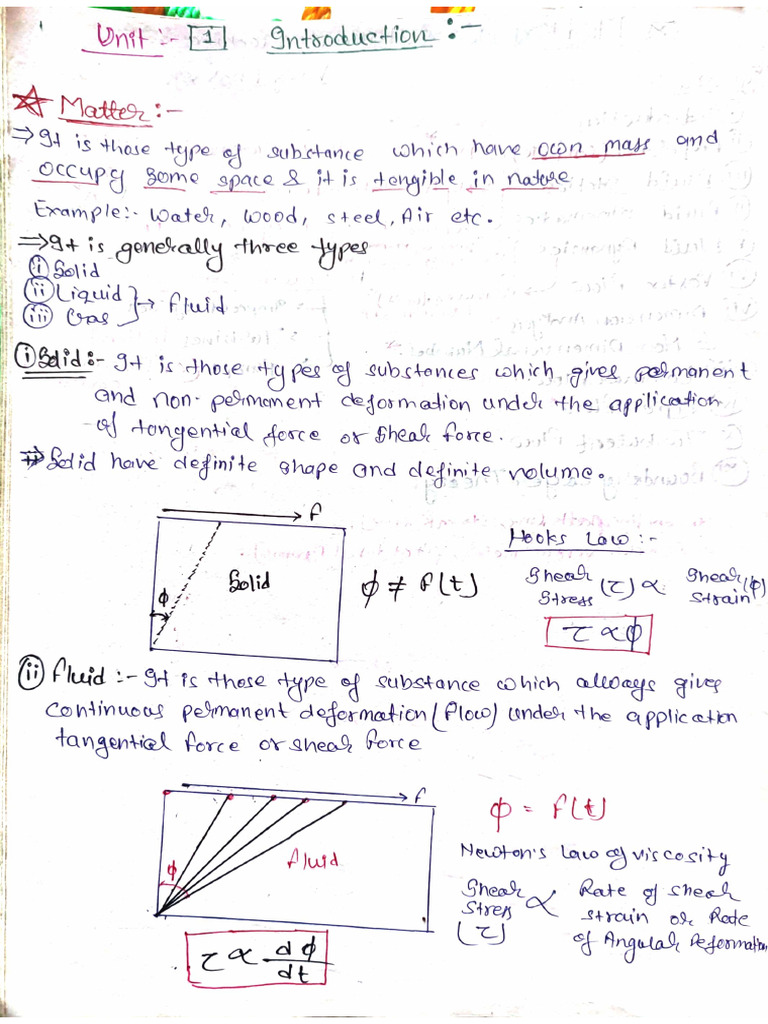 Unit :- 1 Introduction :-
Matter :-
⇒ It is those type of substance which have own mass and
occupy some space & it is tangible in nature
Example:- Water, Wood, Steel, Air etc.
⇒ It is generally three types
(i) Solid
(ii) Liquid
(iii) Gas
→ fluid
(i) Solid :- It is those types of substances which gives permanent
and non-permanent deformation under the application
of tangential force or shear force.
⇒ Solid have definite shape and definite volume.
F
Solid
ϕ
ϕ ≠ f(t)
Hooks Law :-
Shear Stress (τ) ∝ Shear Strain (ϕ)
τ ∝ ϕ
(ii) fluid :- It is those type of substance which always gives
continuous permanent deformation (flow) under the application
tangential force or shear force
F
fluid
ϕ
τ ∝ dϕ/dt
ϕ = f(t)
Newton's Law of viscosity
Shear Stress (τ) ∝ Rate of shear
strain or Rate
of Angular Deformation